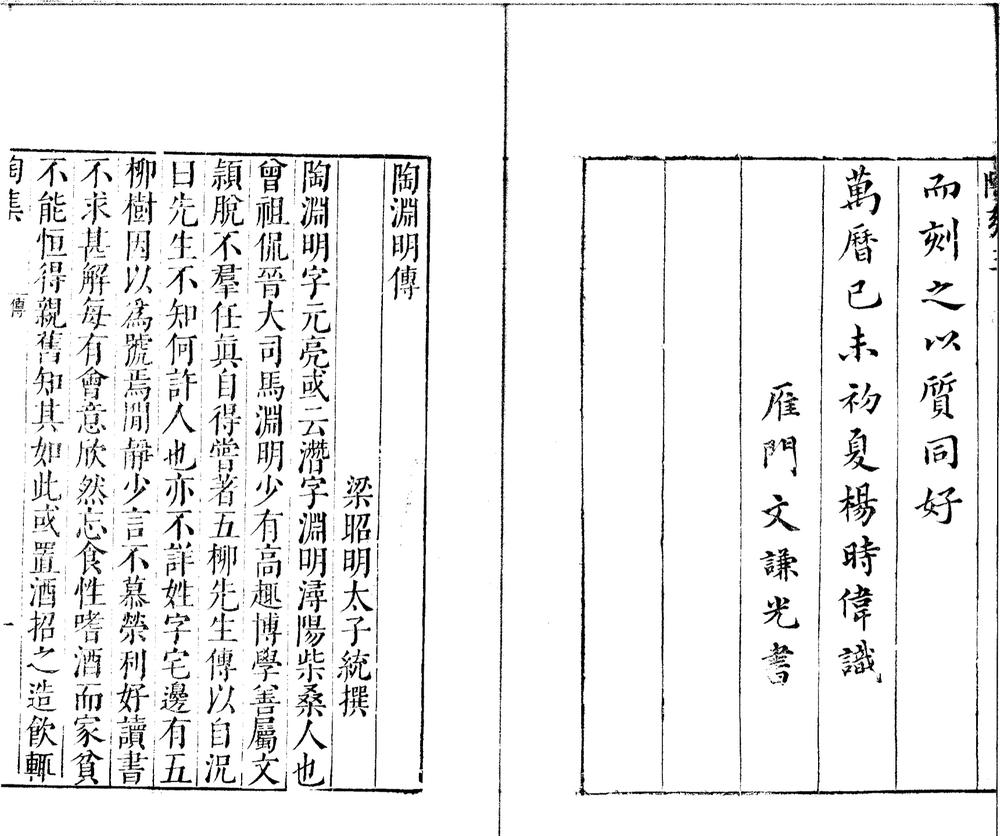 而刻之以質同好
萬曆己未初夏楊時偉識
雁門文謙光書
陶淵明傳
梁昭明太子統撰
陶淵明字元亮或云潛字淵明潯陽柴桑人也
曾祖侃晉大司馬淵明少有高趣博學善屬文
頴脫不羣任眞自得嘗著五柳先生傳以自況
曰先生不知何許人也亦不詳姓字宅邊有五
柳樹因以爲號焉閒靜少言不慕榮利好讀書
不求甚解每有會意欣然忘食性嗜酒而家貧
不能恒得親舊知其如此或置酒招之造飲輒
陶集
傳
一